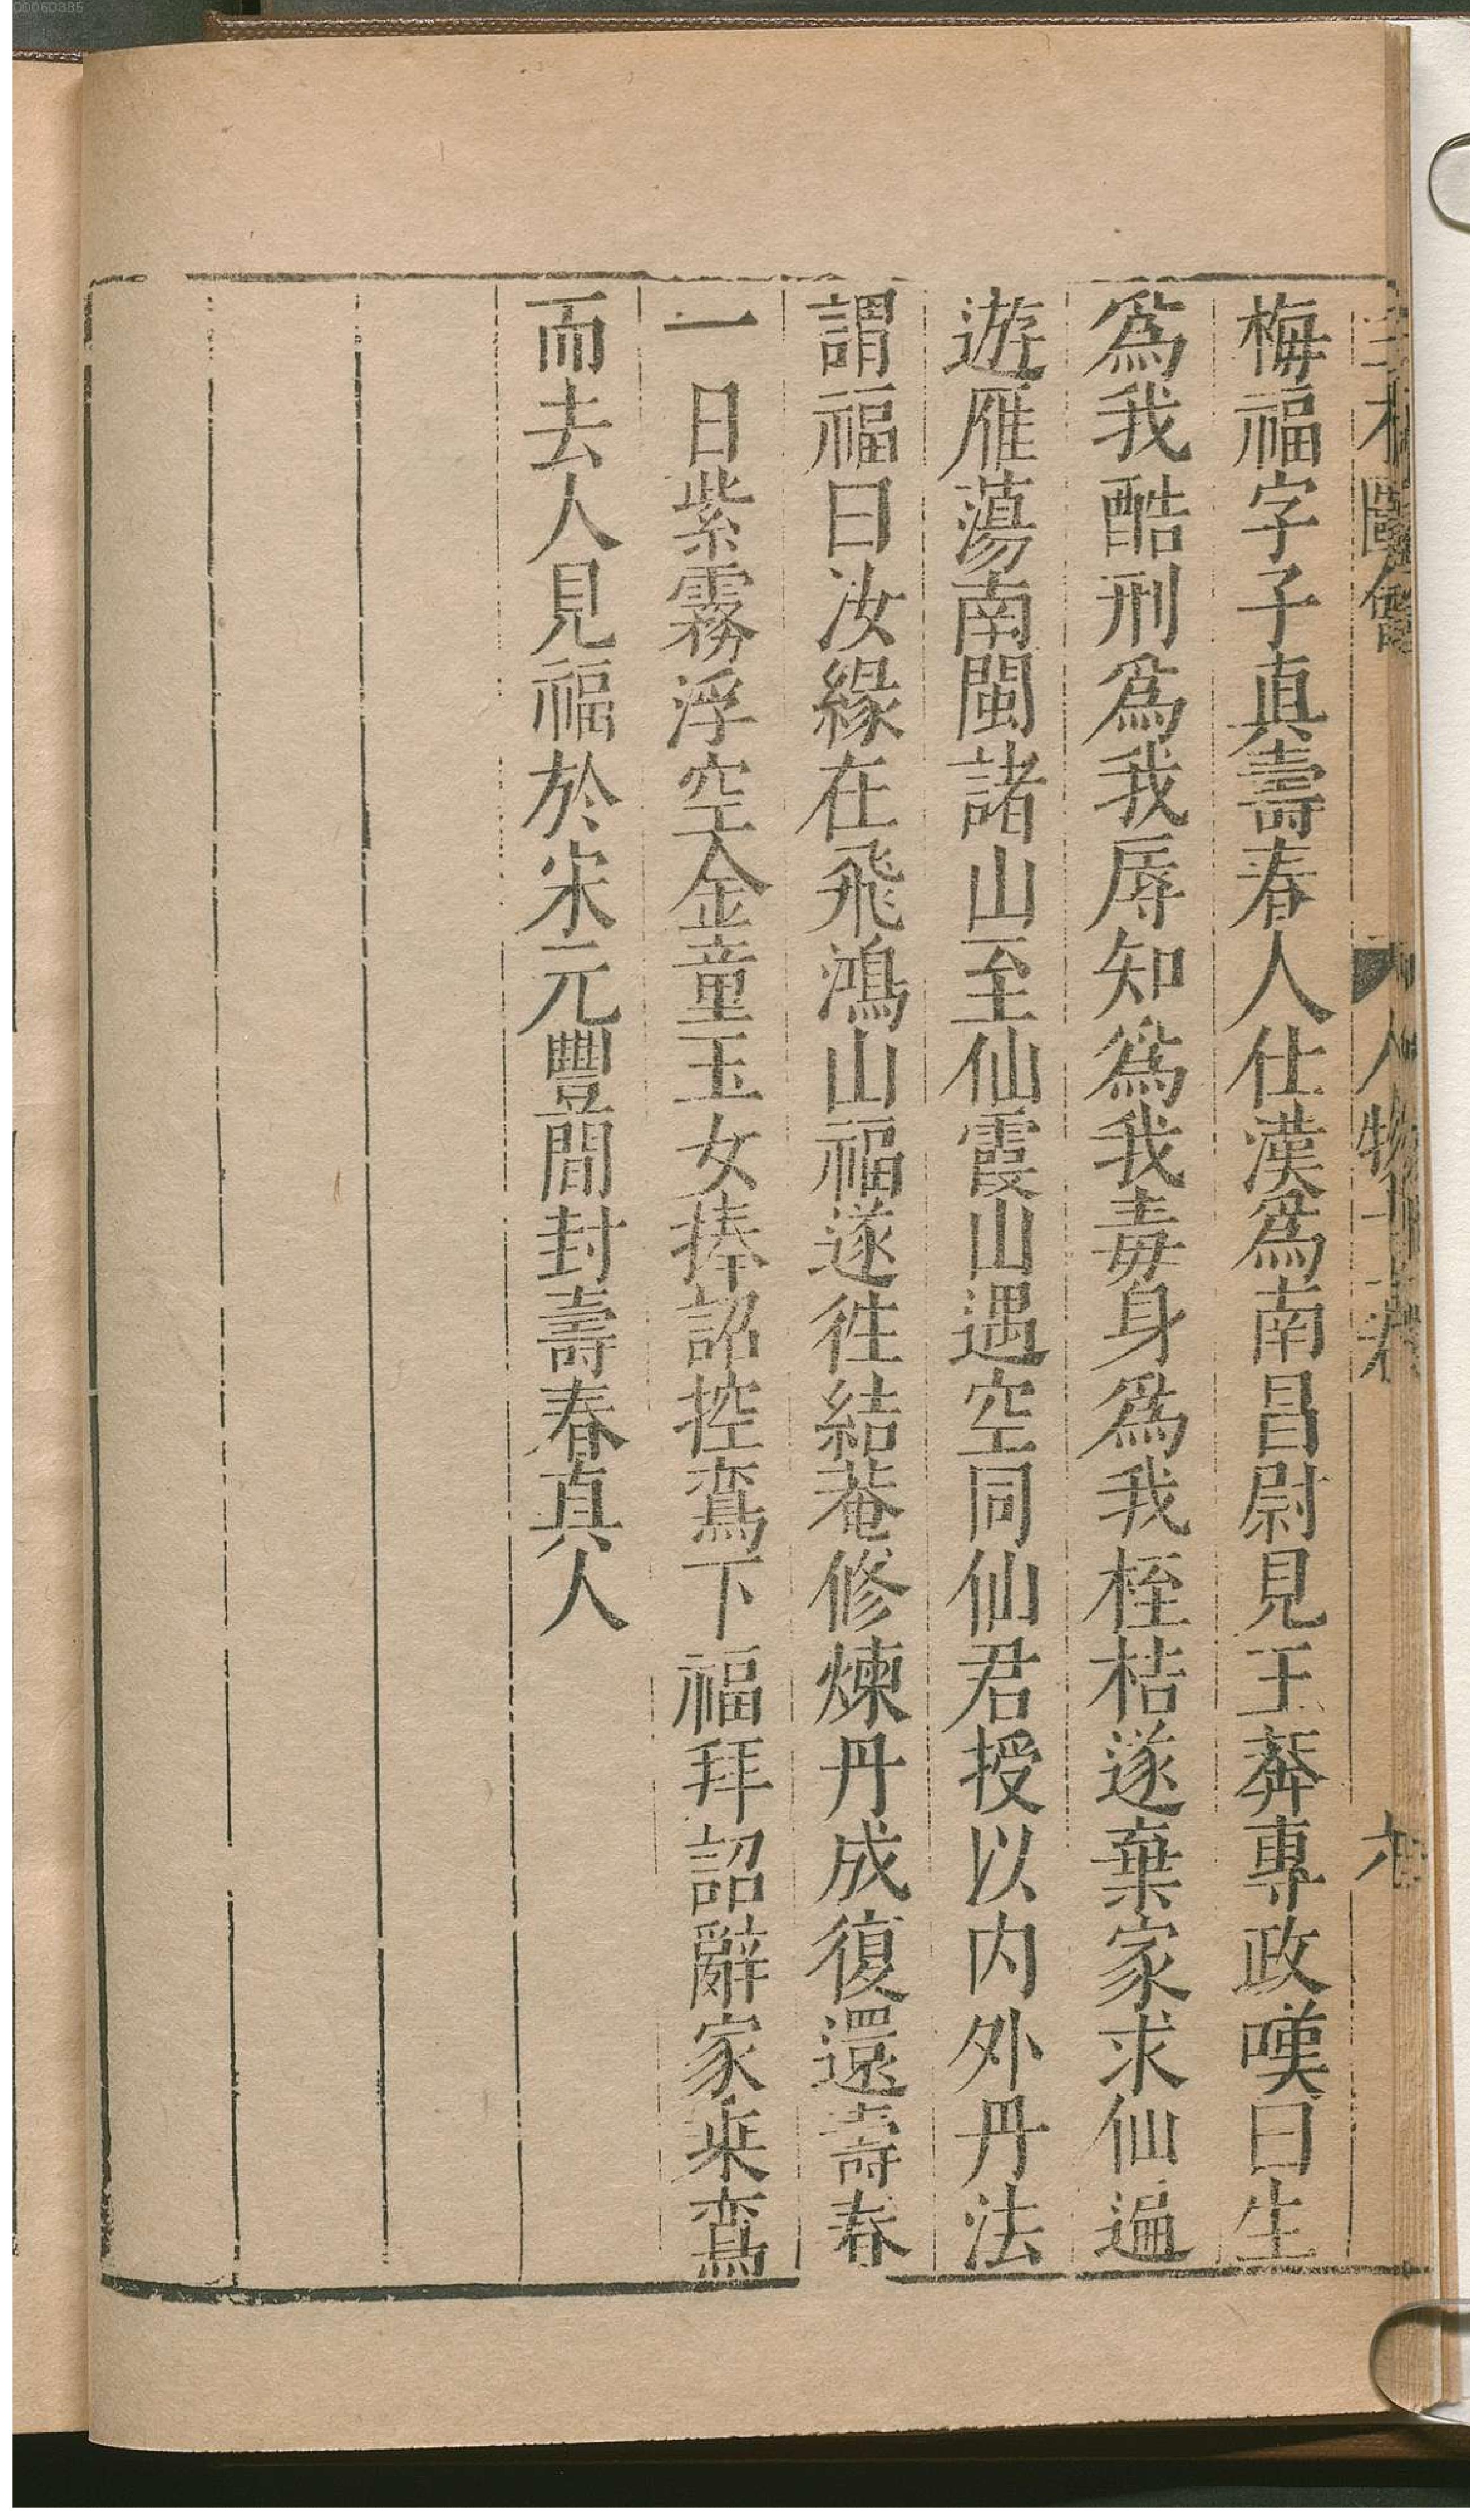 梅福字子真壽春人仕漢爲南昌尉見王莽專政嘆曰生
爲我酷刑爲我辱知爲我毒身爲我桎梏遂棄家求仙遍
遊雁蕩南閩諸山至仙霞山遇空同仙君授以内外丹法
謂福曰汝緣在飛鴻山福遂徃結菴修煉丹成復還壽春
一日紫霧浮空金童玉女捧詔控鸾下福拜詔辭家乘鸾
而去人見福於宋元豐間封壽春真人